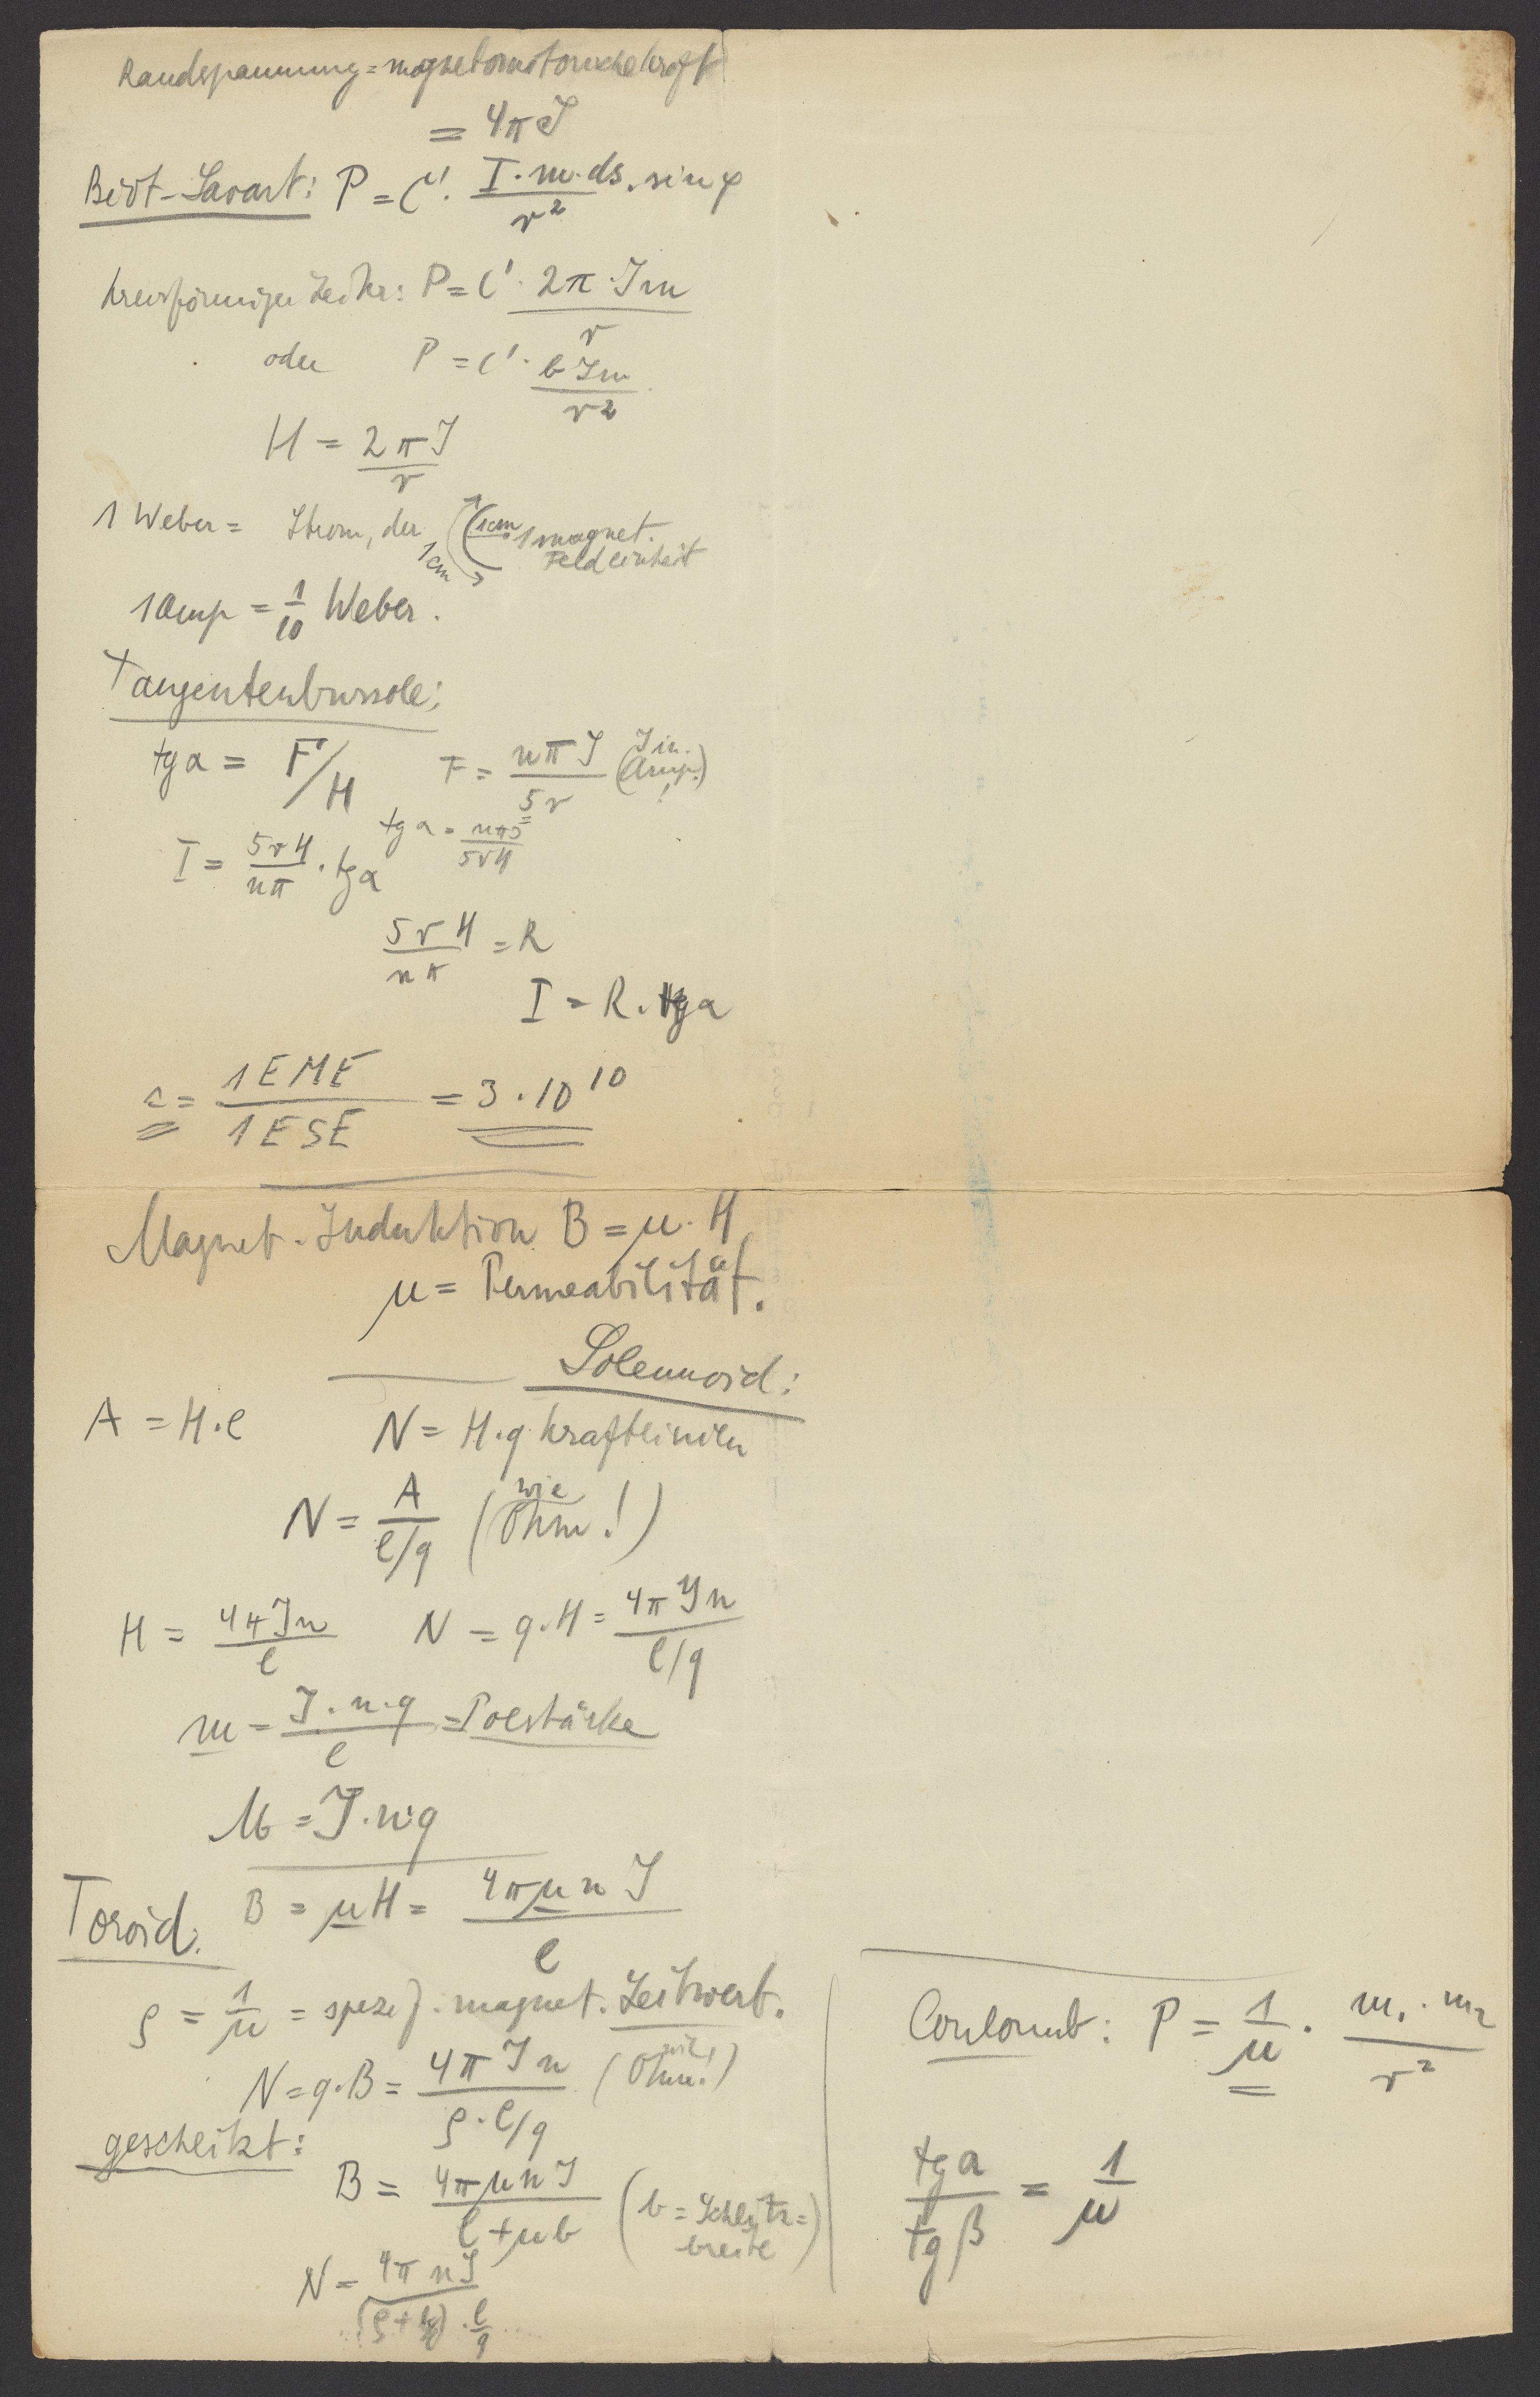 Randspannung = magnetomotorische Kraft
= 4πJ
Biot-Savart: P = C'. I·m·ds/r² . sin φ
kreisförmiger Leiter: P = C'· 2π·Jm/r
oder P = C'· bJm/r²
H = 2πJ/r
1 Weber = Strom, der 1cm 1cm 1 magnet. Feldeinheit
1 Amp = 1/10 Weber.
Tangentenbussole:
tg α = F/H F = nπJ/5r (J in Amp.!)
tg α = nπJ/5rH
I = 5rH/nπ · tg α
5rH/nπ = R
I = R. tg α
c = 1EME/1ESE = 3·10¹⁰
Magnet. Induktion B = μ·H
μ = Permeabilität.
Solennoid:
A = H·l N = H·q Kraftlinien
N = A/l/q (wie Ohm!)
H = 4πJn/l N = q·H = 4πJn/l/q
m = J·n·q/l = Polstärke
M = J·n·q
Toroid: B = μH = 4πμnJ/l
ρ = 1/μ = spezif. magnet. Leitwert.
N = q·B = 4πJn/ρ·l/q (wie Ohm!)
geschlitzt:
B = 4πμnJ/l+μb (b = Schlitz=
breite)
N = 4πnJ/(ρ+b/l)·l/q
Coulomb: P = 1/μ · m₁·m₂/r²
tg α/tg β = 1/μ